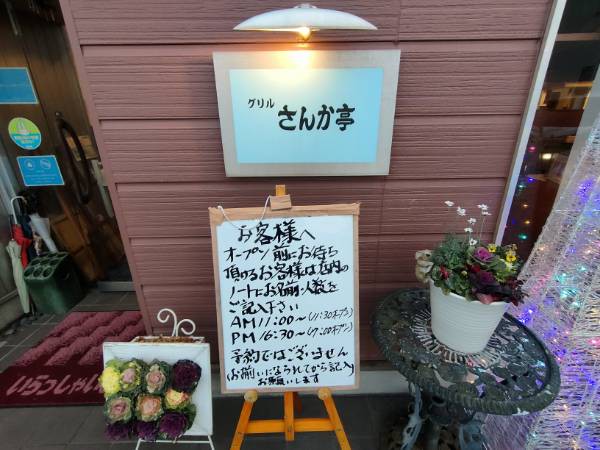 グリル
さんか亭
お客様へ
オープン前にお待ち
頂けるお客様は店内の
ノートにお名前・人数を
ご記入下さい
AM11:00〜(11:30オープン)
PM16:30〜(17:00オープン)
予約ではございません
お揃いになられてから記入
お願いします
いらっしゃい